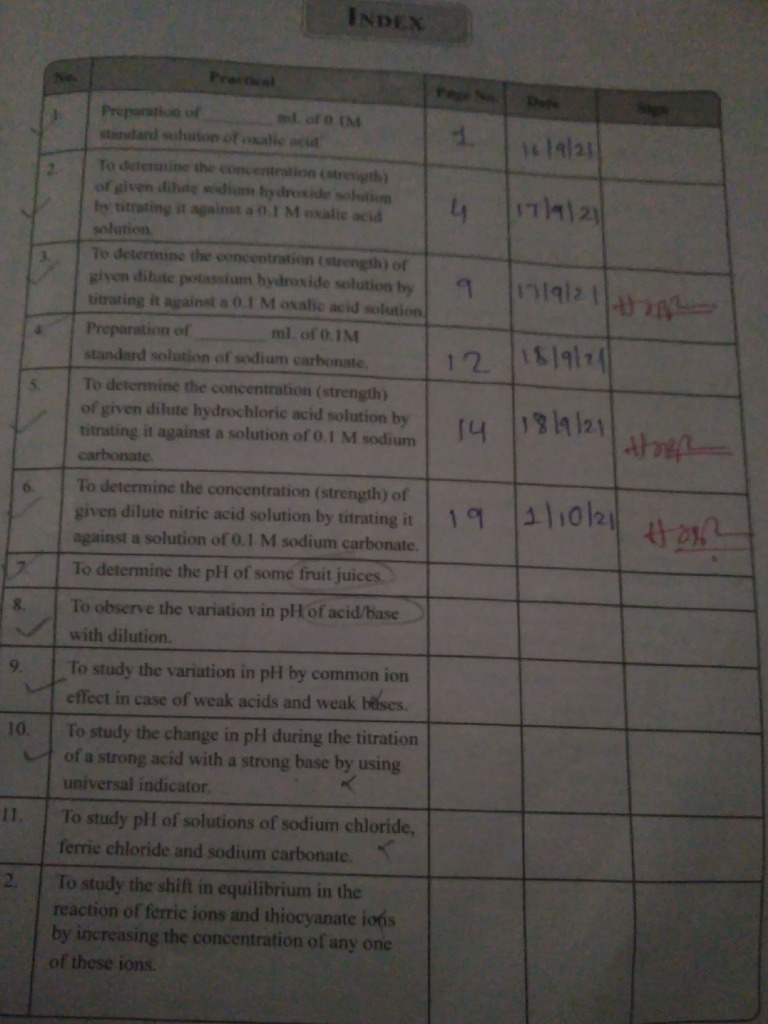 INDEX
No. Practical Page No. Date Sign
1. Preparation of ________ mL of 0.1M 1 16/9/21
standard solution of oxalic acid.
2. To determine the concentration (strength) 4 17/9/21
of given dilute sodium hydroxide solution
by titrating it against a 0.1 M oxalic acid
solution.
3. To determine the concentration (strength) of 9 17/9/21
given dilute potassium hydroxide solution by
titrating it against a 0.1 M oxalic acid solution.
4. Preparation of ________ mL of 0.1M 12 18/9/21
standard solution of sodium carbonate.
5. To determine the concentration (strength) 14 18/9/21
of given dilute hydrochloric acid solution by
titrating it against a solution of 0.1 M sodium
carbonate.
6. To determine the concentration (strength) of 19 1/10/21
given dilute nitric acid solution by titrating it
against a solution of 0.1 M sodium carbonate.
7. To determine the pH of some fruit juices.
8. To observe the variation in pH of acid/base
with dilution.
9. To study the variation in pH by common ion
effect in case of weak acids and weak bases.
10. To study the change in pH during the titration
of a strong acid with a strong base by using
universal indicator.
11. To study pH of solutions of sodium chloride,
ferric chloride and sodium carbonate.
2. To study the shift in equilibrium in the
reaction of ferric ions and thiocyanate ions
by increasing the concentration of any one
of these ions.